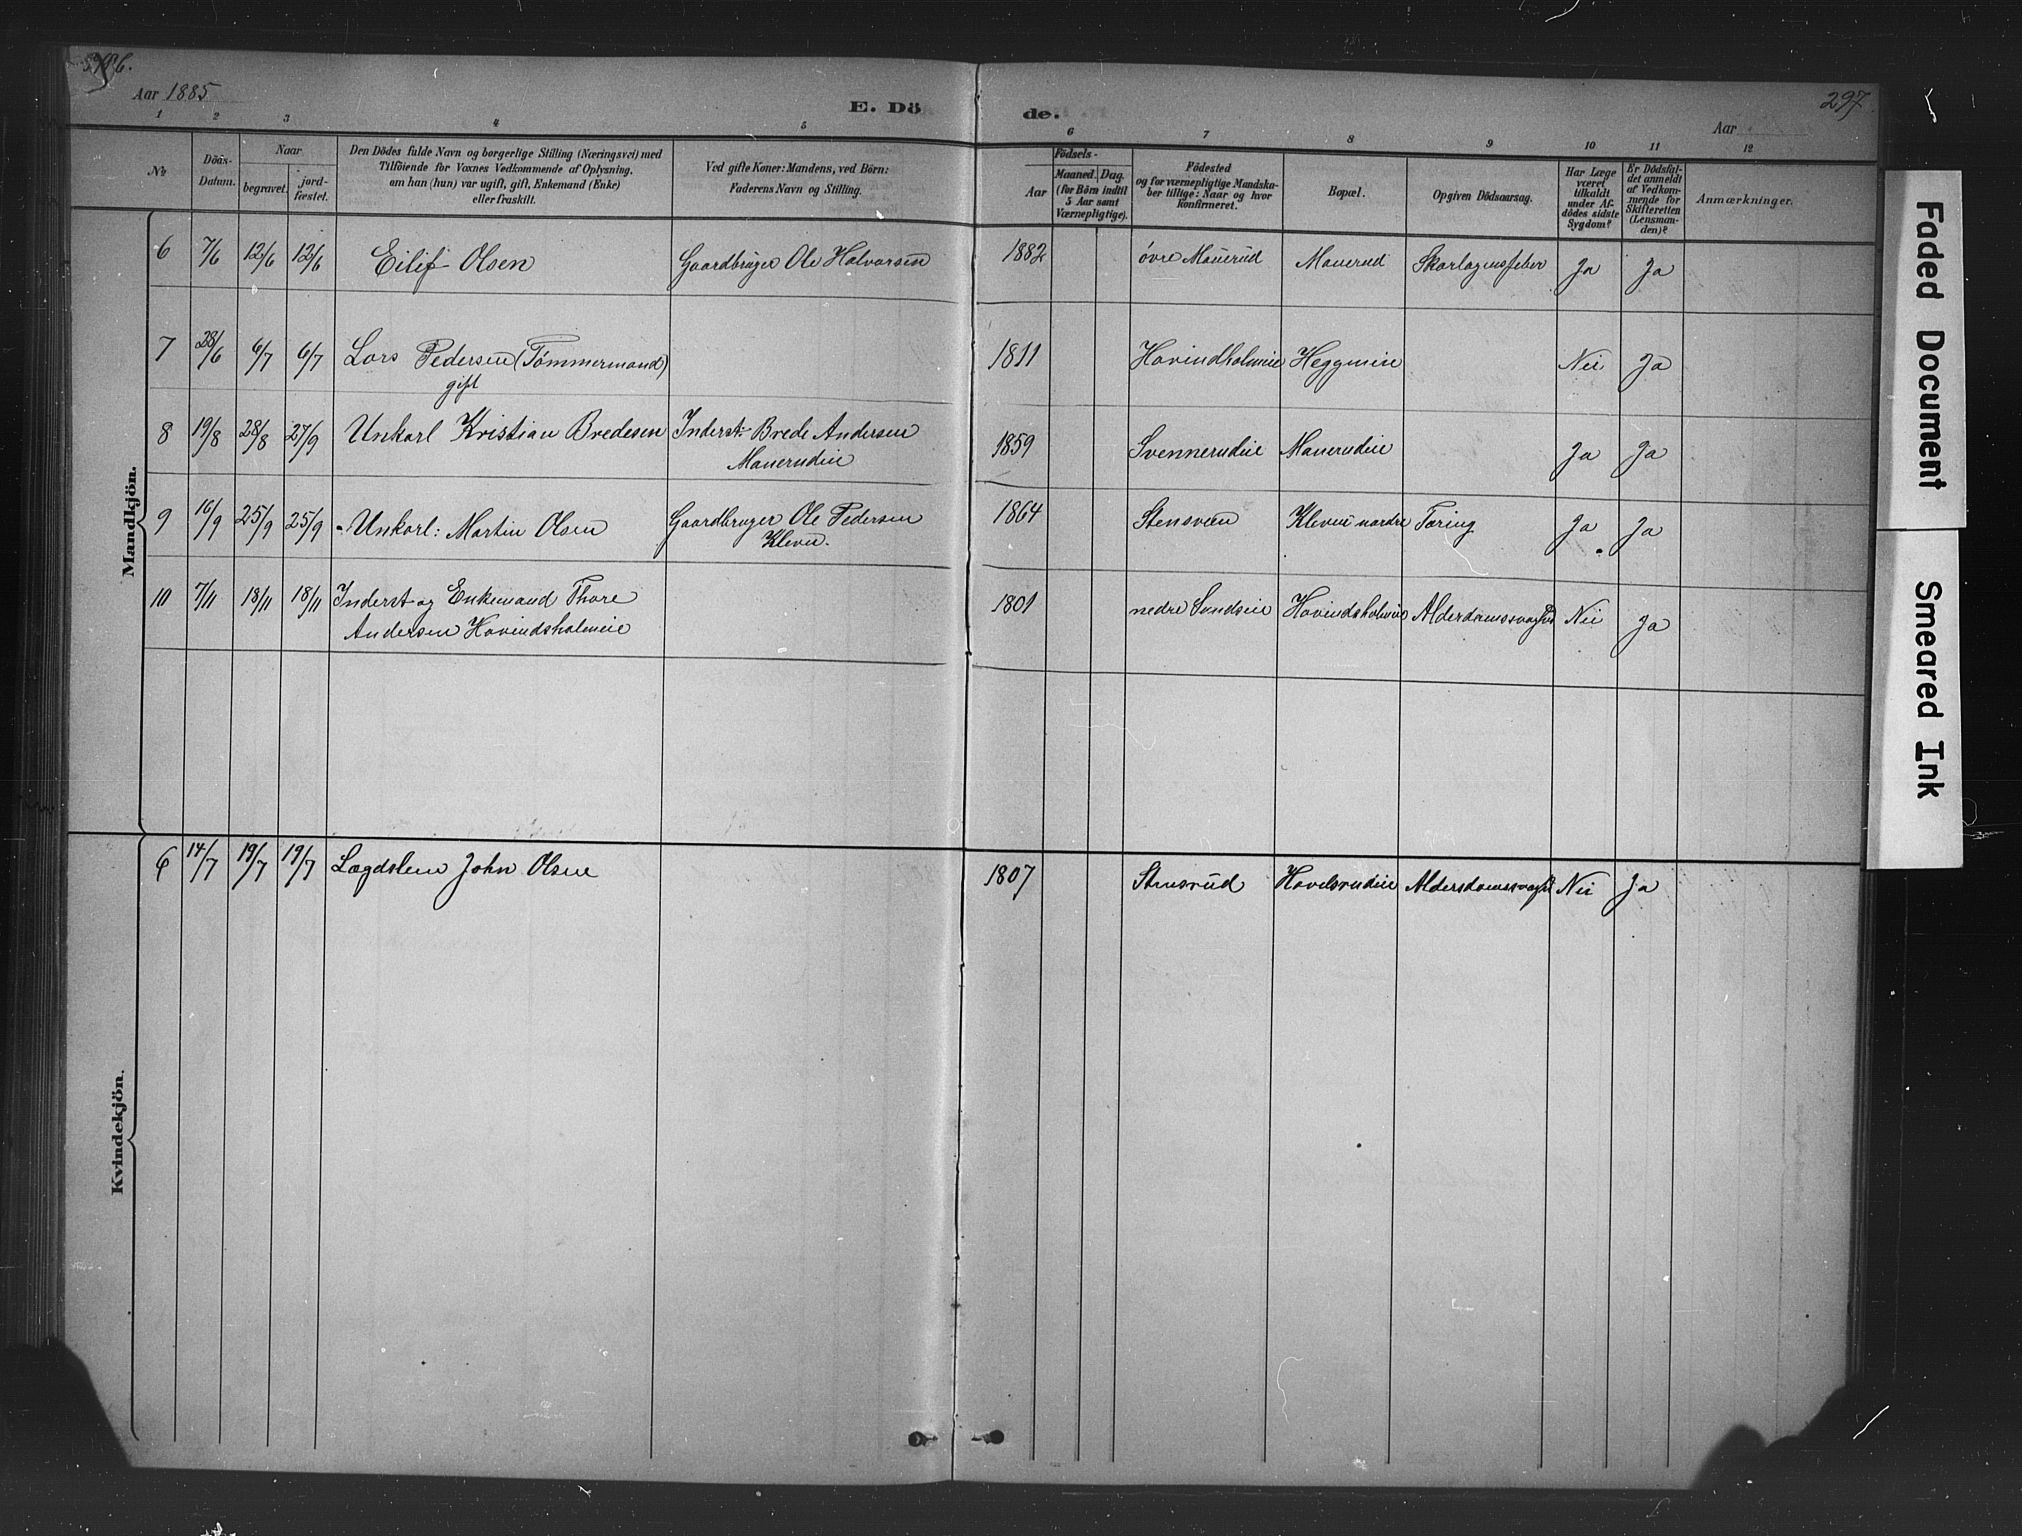 296.
Aar 1885
E. Dö
de.
297
Aar
1 2 3 4 5 6 7 8 9 10 11 12
No
Döds-
Datum.
Naar
begravet.
jord-
fæstet.
Den Dödes fulde Navn og borgerlige Stilling (Næringsvei) med
Tilföiende for Voxnes Vedkommende af Oplysning,
om han (hun) var ugift, gift, Enkemand (Enke)
eller fraskilt.
Ved gifte Koner: Mandens, ved Börn:
Faderens Navn og Stilling.
Födsels-
Aar
Maaned. Dag.
(for Börn indtil
5 Aar samt
Værnepligtige).
Födested
og for værnepligtige Mandska-
ber tillige: Naar og hvor
konfirmeret.
Bopæl.
Opgiven Dödsaarsag.
Har Læge
været
tilkaldt
under Af-
dödes sidste
Sygdom?
Er Dödsfal-
det anmeldt
af Vedkom-
mende for
Skifteretten
(Lensman-
den)?
Anmærkninger.
Mandkjön.
6 7/6 12/6 12/6 Eilif Olsen Gaardbruger Ole Halvorsen 1882 øvre Mauerud Mauerud Skarlagensfeber Ja Ja
7 28/6 6/7 6/7 Lars Pedersen (Tømmermand) 1811 Hovindholmeie Heggineie Nei Ja
gift
8 19/8 28/8 27/9 Unkarl Kristian Bredesen Inderst: Brede Andersen 1859 Svennerudeie Mauerudeie Ja Ja
Mauerudeie
9 16/9 25/9 25/9 Unkarl: Martin Olsen Gaardbruger Ole Pedersen 1864 Stensveen Kleven nordre Tæring Ja Ja
Kleven.
10 7/11 18/11 18/11 Inderst og Enkemand Thore 1801 nedre Sundseie Hovindsholmeie Alderdomssvaghed Nei Ja
Andersen Hovindsholmeie
Kvindekjön.
6 14/7 19/7 19/7 Lægdslem John Olsen 1807 Stensrud Hovelsrudeie Aldersdomssvaghed Nei Ja
Faded Document
Smeared Ink